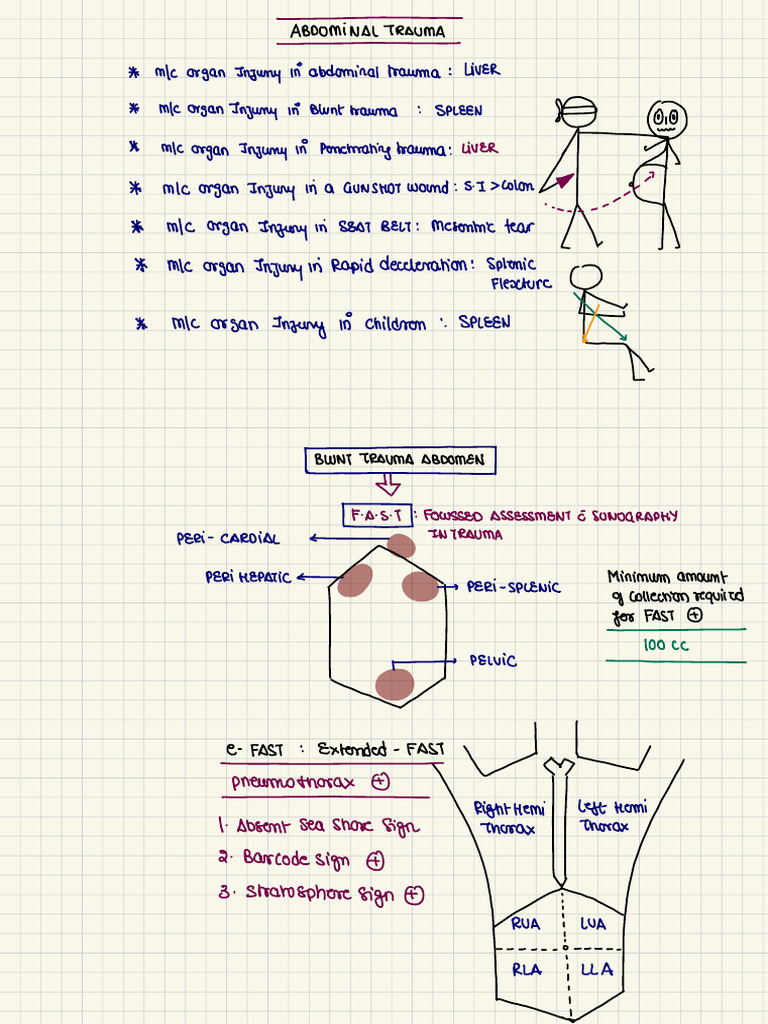 ABDOMINAL TRAUMA
* m/c organ Injury in abdominal trauma : LIVER
* m/c organ Injury in Blunt trauma : SPLEEN
* m/c organ Injury in Penetrating trauma : LIVER
* m/c organ Injury in a GUNSHOT wound : S.I > Colon
* m/c organ Injury in SEAT BELT : Mesentric tear
* m/c organ Injury in Rapid deceleration : Splenic
Flexcture
* m/c organ Injury in children : SPLEEN
BLUNT TRAUMA ABDOMEN
F.A.S.T : FOCUSSED ASSESSMENT c̄ SONOGRAPHY
IN TRAUMA
PERI-CARDIAL
PERI HEPATIC
PERI-SPLENIC
PELVIC
Minimum amount
of collection required
for FAST ⊕
100 CC
e-FAST : Extended-FAST
pneumothorax ⊕
1. Absent Sea Shore Sign
2. Barcode sign ⊕
3. Stratosphere sign ⊕
Right Hemi
Thorax
Left Hemi
Thorax
RUA
LUA
RLA
LLA